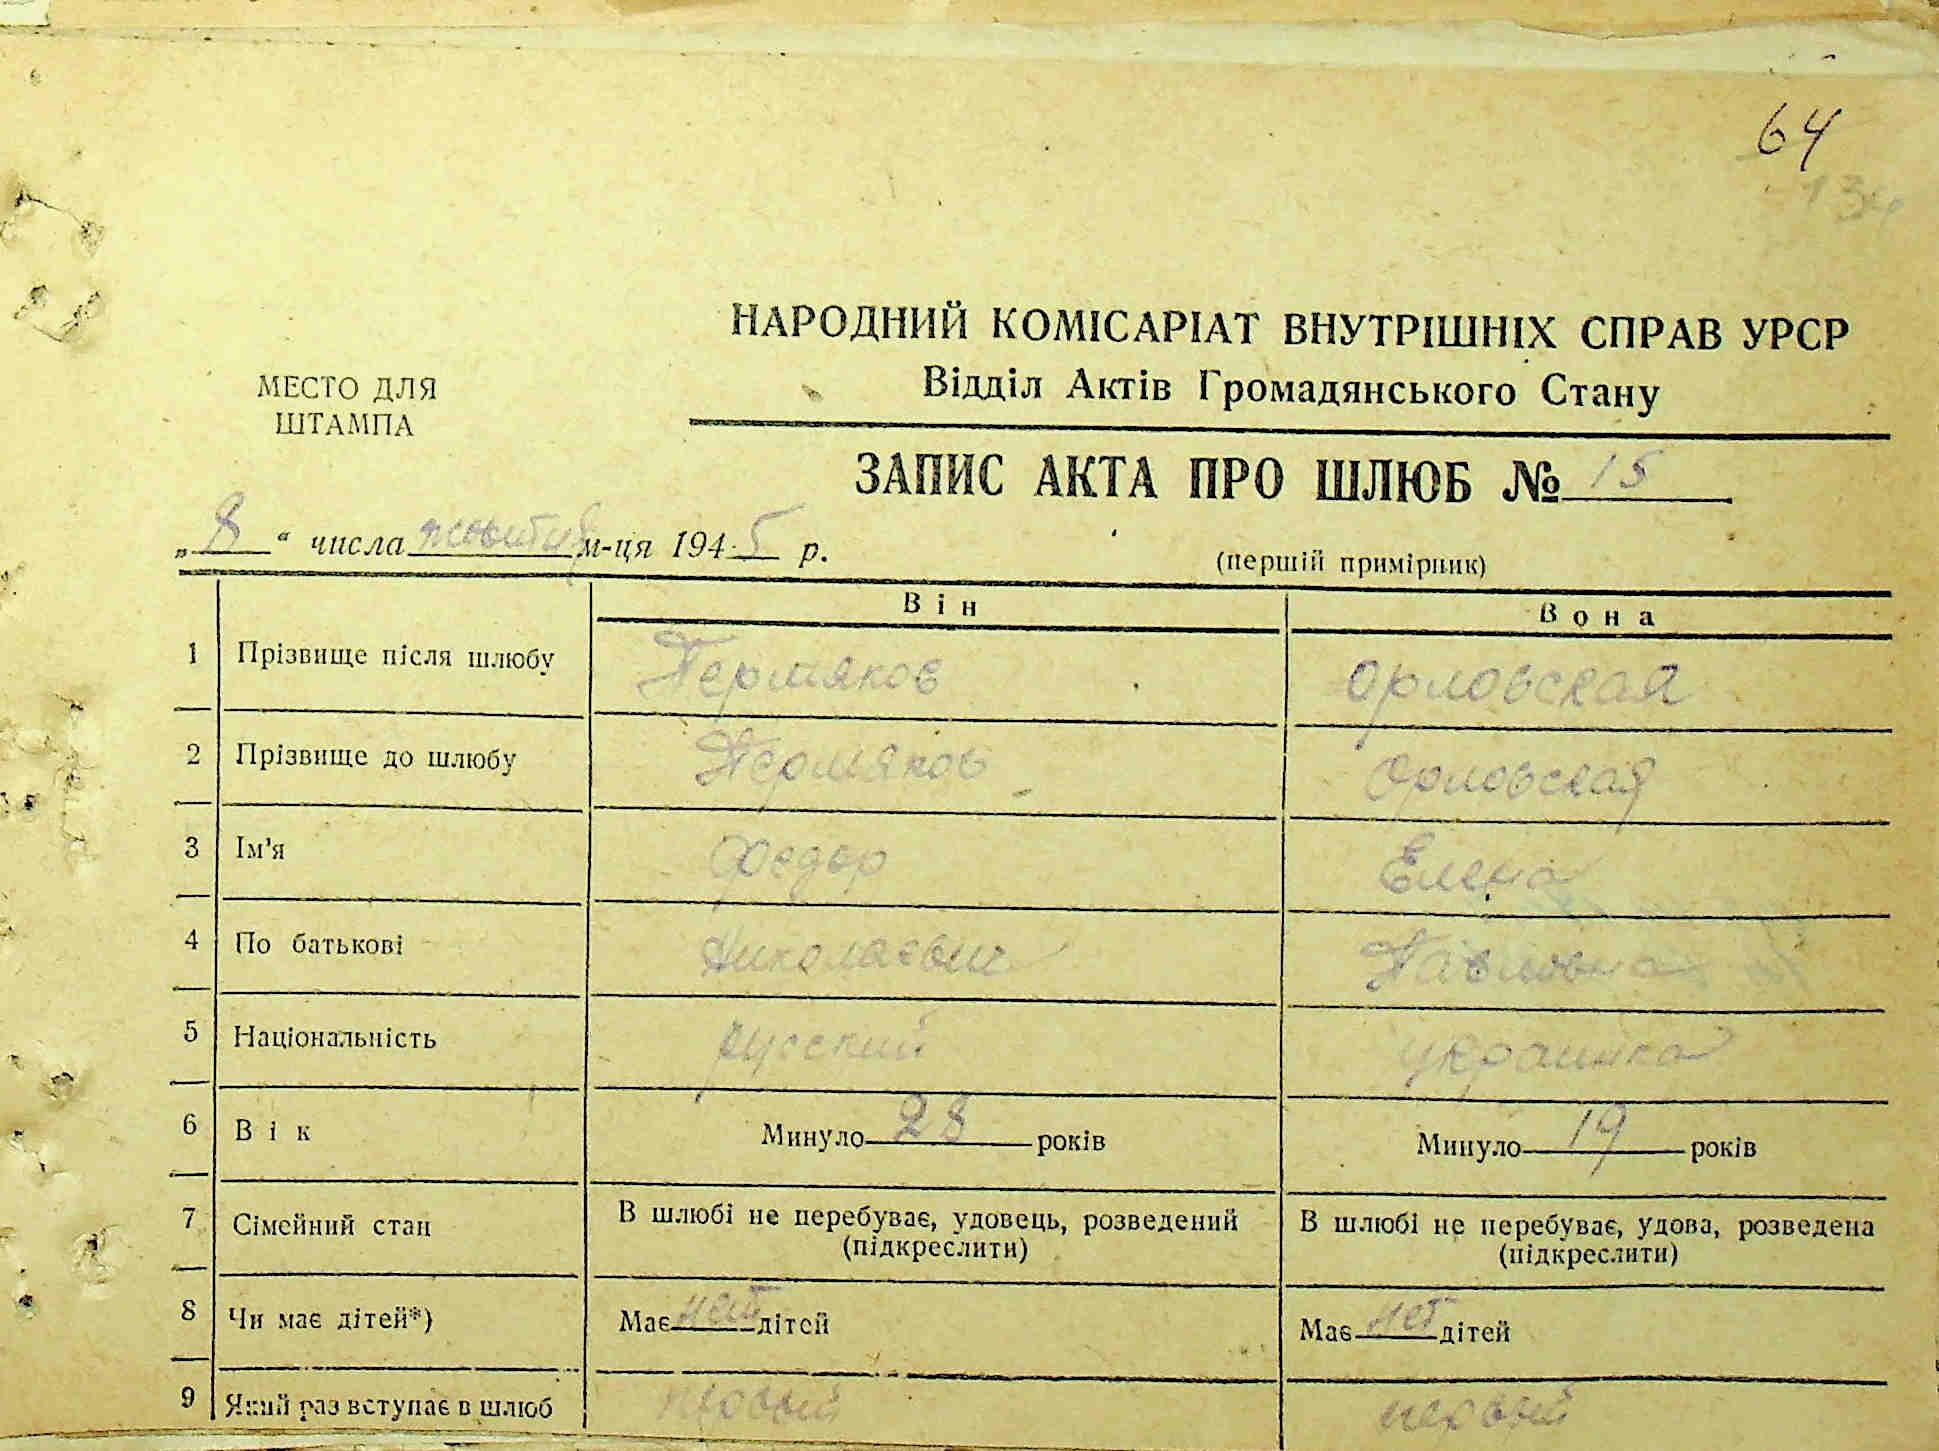 64
134
НАРОДНИЙ КОМІСАРІАТ ВНУТРІШНІХ СПРАВ УРСР
Відділ Актів Громадянського Стану
МЕСТО ДЛЯ
ШТАМПА
ЗАПИС АКТА ПРО ШЛЮБ № 15
„8“ числа жовтня м-ця 1945 р.
(перший примірник)
Він Вона
1 Прізвище після шлюбу Пермяков Орловская
2 Прізвище до шлюбу Пермяков Орловская
3 Ім’я Федор Елена
4 По батькові Николаевич Павловна
5 Національність русский украинка
6 Вік Минуло 28 років Минуло 19 років
7 Сімейний стан В шлюбі не перебуває, удовець, розведений (підкреслити) В шлюбі не перебуває, удова, розведена (підкреслити)
8 Чи має дітей*) Має нет дітей Має нет дітей
9 Який раз вступає в шлюб первый первый